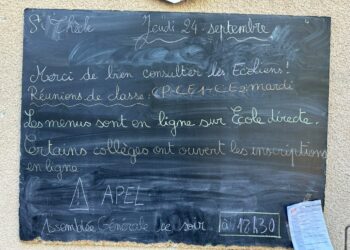 Jeudi 24 septembre
Merci de bien consulter les Ecoliens!
Réunions de classe: CP-CE1-CE2 mardi
Les menus sont en ligne sur Ecole directe.
Certains collèges ont ouvert les inscriptions
en ligne
⚠ APEL
Assemblée Générale ce soir à 18h30